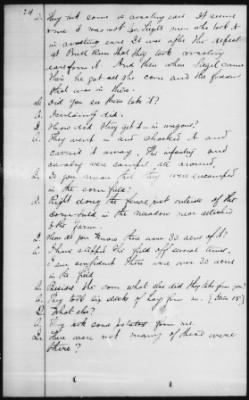 A. They took some in roasting ears. It seems
to me it was not so. Sigel's men who took it
in roasting ears. It was after the defeat
at Bull Run that they took roasting
ears from it. And then when Sigel came
there he got all the corn and the fences
that was in there.
Q. Did you see them take it?
A. Certainly I did.
Q. How did they get it – in wagons?
A. They went in and shocked it and
carried it away. The infantry and
cavalry were camped all around.
Q. Do you mean that they were encamped
in the corn field?
A. Right along the fence just outside of the
corn field in the meadow near
the farm.
Q. How do you know there were 30 acres of it?
A. I have stepped the field off several times,
I am confident there were over 30 acres
in the field
Q. Besides the corn what else did they take from you?
A. They took six stacks of hay from me. (Item 15)
Q. What else?
A. They took some potatoes from me.
Q. There were not many of these were
there?